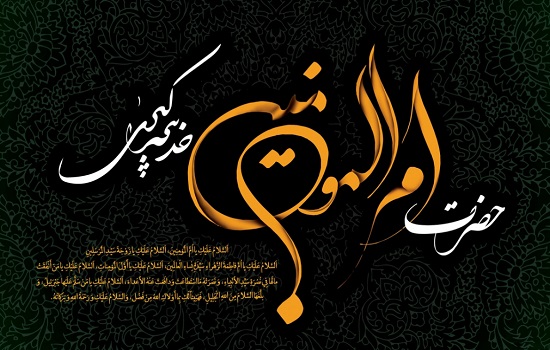 حضرت
ام المومنین
خدیجه کبری
اَلسَّلامُ عَلَيْكِ يا اُمَّ الْمُؤْمِنينَ، اَلسَّلامُ عَلَيْكِ يا زَوْجَةَ سَيِّدِ الْمُرْسَلينَ
اَلسَّلامُ عَلَيْكِ يا اُمَّ فاطِمَةَ الزَّهْراءِ سَيِّدَةِ نِساءِ الْعالَمينَ، اَلسَّلامُ عَلَيْكِ يا اَوَّلَ الْمُؤْمِناتِ، اَلسَّلامُ عَلَيْكِ يا مَنْ اَنْفَقَتْ
مالَها في نُصْرَةِ سَيِّدِ الاَنْبِياءِ، وَنَصَرَتْهُ مَااسْتَطاعَتْ وَدافَعَتْ عَنْهُ الاَعْداءَ، اَلسَّلامُ عَلَيْكِ يا مَنْ سَلَّمَ عَلَيْها جَبْرَئيلُ، وَ
بَلَّغَهَا السَّلامَ مِنَ اللهِ الْجَليلِ، فَهَنيئاً لَكِ بِما اَوْلاكِ اللهُ مِنْ فَضْل، وَالسَّلامُ عَلَيْكِ وَرَحْمَةُ اللهِ وَبَرَكاتُهُ.